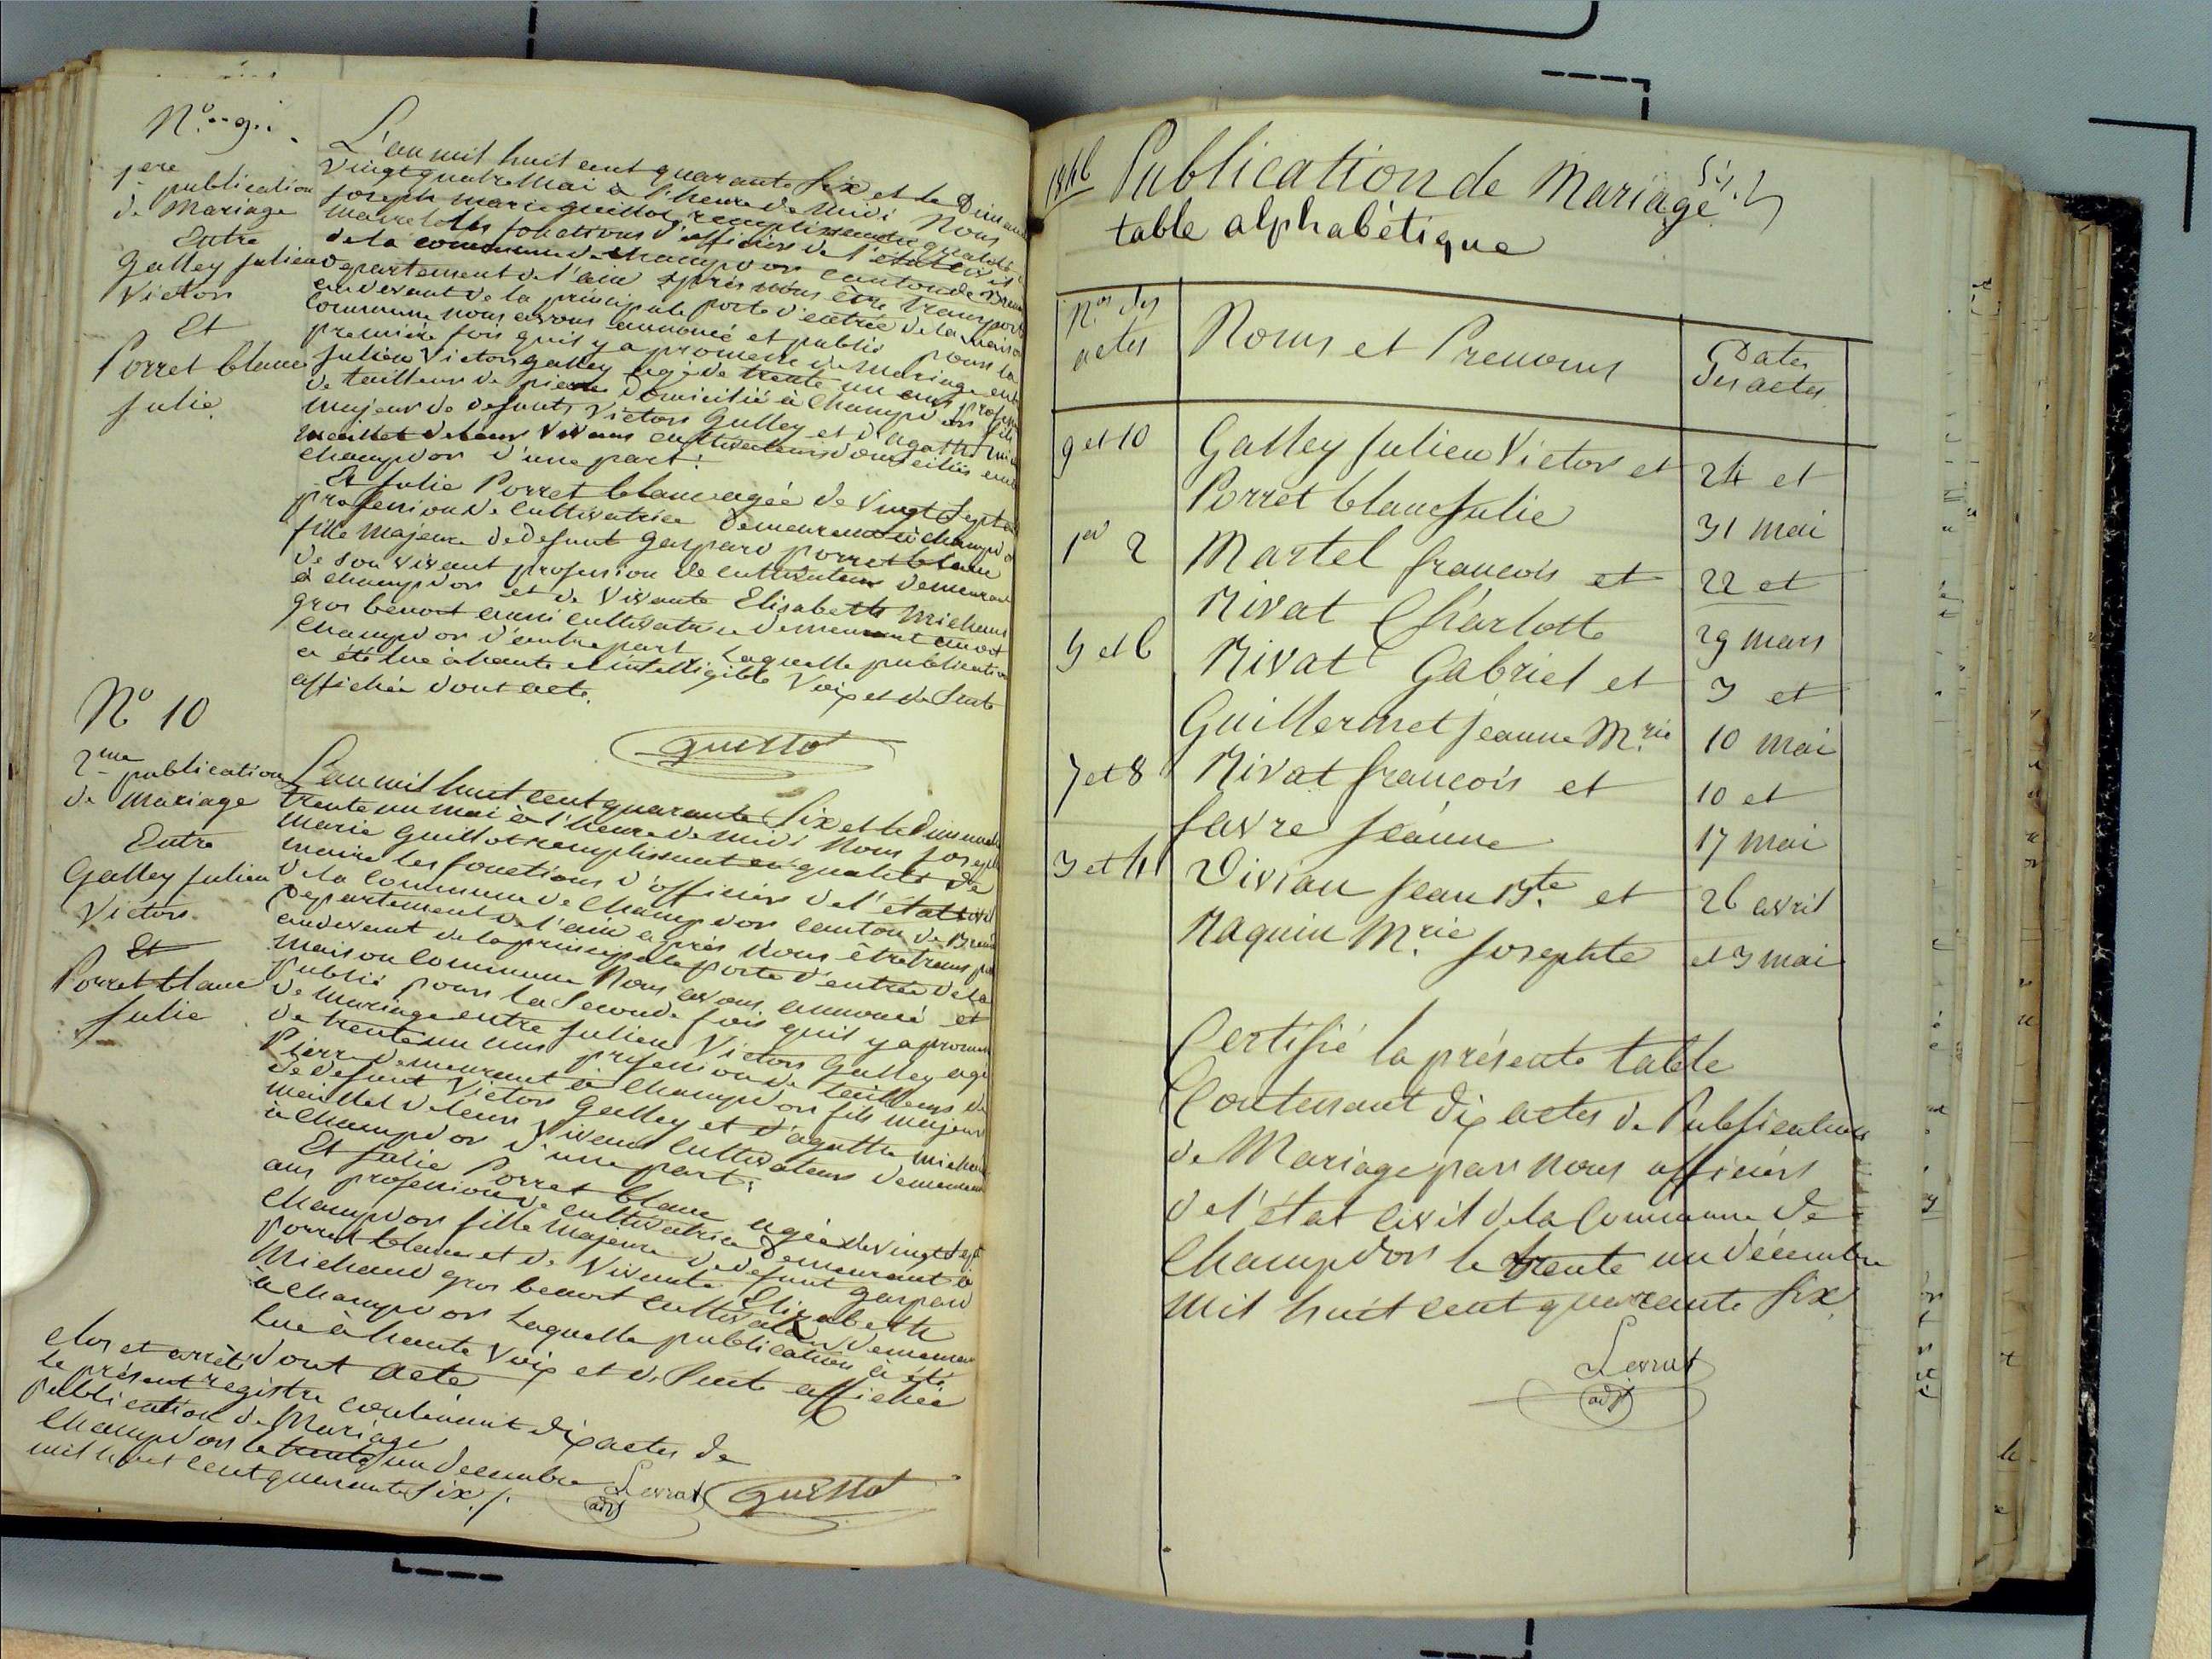 N.º 9.
1ère publication
de Mariage
Entre
Galley julien
Victor
Et
Porret blanc
julie.
L'an mil huit cent quarante six et le Dimanche
vingt quatre Mai à l'heure de Midi Nous
joseph marie guillot remplissant en qualité de
maire les fonctions d'officier de l'état civil
de la commune de champdor canton de Bren
departement de l'ain après nous être transporté
au devant de la principale porte d'entrée de la maison
Commune nous avons annoncé et publié pour la
première fois qu'il y a promesse de mariage entre
julien Victor galley agé de trente un ans profession
de tailleur de pierre domicilié à Champdor fils
majeur de defunts Victor Galley et d'agathe mich
maillet de leur vivans cultivateurs domiciliés
champdor d'une part :
Et julie Porret blanc agée de vingt sept ans
profession de Cultivatrice demeurant à champdor
fille majeure de defunt gaspard porret blanc
de son vivant profession de cultivateur demeurant
à champdor et de vivante Elisabeth Michaud
gros benoit aussi cultivatrice demeurant
champdor d'autre part Laquelle publication
a été lue à haute et intelligible Voix et de Suite
affichée dont acte.
guillot
Nº 10
2me publication
de Mariage
Entre
Galley julien
Victor
Et
Porret blanc
julie
L'an mil huit cent quarante six et le Dimanche
trente un mai à l'heure de midi Nous joseph
marie guillot remplissant en qualité de
maire les fonctions d'officier de l'état civil
de la Commune de Champdor Canton de Bren
Departement de l'ain après Nous être transporté
au devant de la principale porte d'entrée de la
maison Commune Nous avons annoncé et
publié pour la seconde fois qu'il y a promesse
de mariage entre julien Victor Galley agé
de trente un ans profession de tailleur de
Pierre demeurant à Champdor fils majeur
de defunt Victor Galley et d'agathe michaud
maillet de leur Vivant Cultivateurs demeurant
à Champdor d'une part ;
Et julie Porret blanc agée de vingt sept
ans profession de cultivatrice demeurant à
Champdor fille majeure de defunt gaspard
porret blanc et de Vivante Elizabeth
Michaud gros benoit Cultivatrice demeurant
à Champdor Laquelle publication à été
Lue à haute Voix et de Suite affichée
dont acte
clos et arrêté
le présent registre contenant dix actes de
publication de Mariage
Champdor le trente un decembre
mil huit cent quarante six /.
Levrat
adjt
guillot
1846 Publication de Mariage
table alphabétique
Nos des
actes
Noms et Prenoms
Dates
Des actes
9 et 10 Galley julien Victor et 24 et
Porret blanc julie 31 mai
1er 2 Martel francois et 22 et
Rivat Charlotte 29 mars
5 et 6 Rivat Gabriel et 3 et
Guillermet jeanne M.rie 10 mai
7 et 8 Rivat francois et 10 et
favre jeanne 17 mai
3 et 4 Vivian jean Bte et 26 avril
Raquin M.rie josephte et 3 mai
Certifié la présente table
Contenant dix actes de Publications
de Mariage par Nous officiers
de l'état civil de la Commune de
Champdor le trente un décembre
mil huit cent quarante six
Levrat
adjt